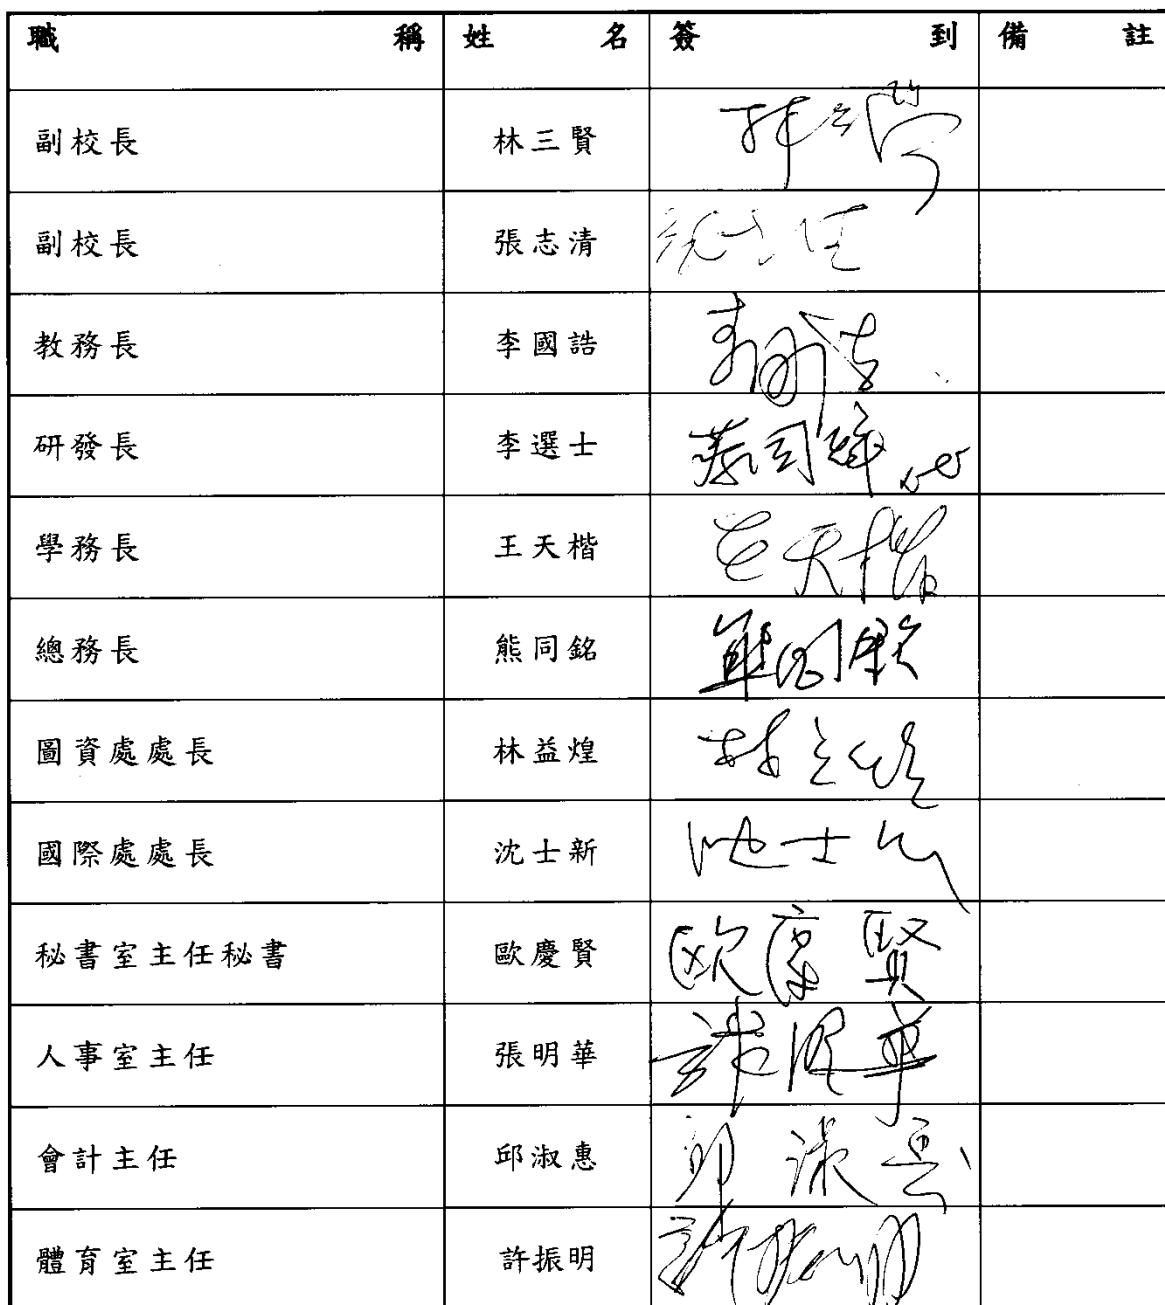 職稱 姓名 簽到 備註
副校長 林三賢
副校長 張志清
教務長 李國誥 李國誥
研發長 李選士 蔡司 代
學務長 王天楷 王天楷
總務長 熊同銘 熊同銘
圖資處處長 林益煌
國際處處長 沈士新 沈士新
秘書室主任秘書 歐慶賢 歐慶賢
人事室主任 張明華 張明華
會計主任 邱淑惠 邱淑惠
體育室主任 許振明 許振明